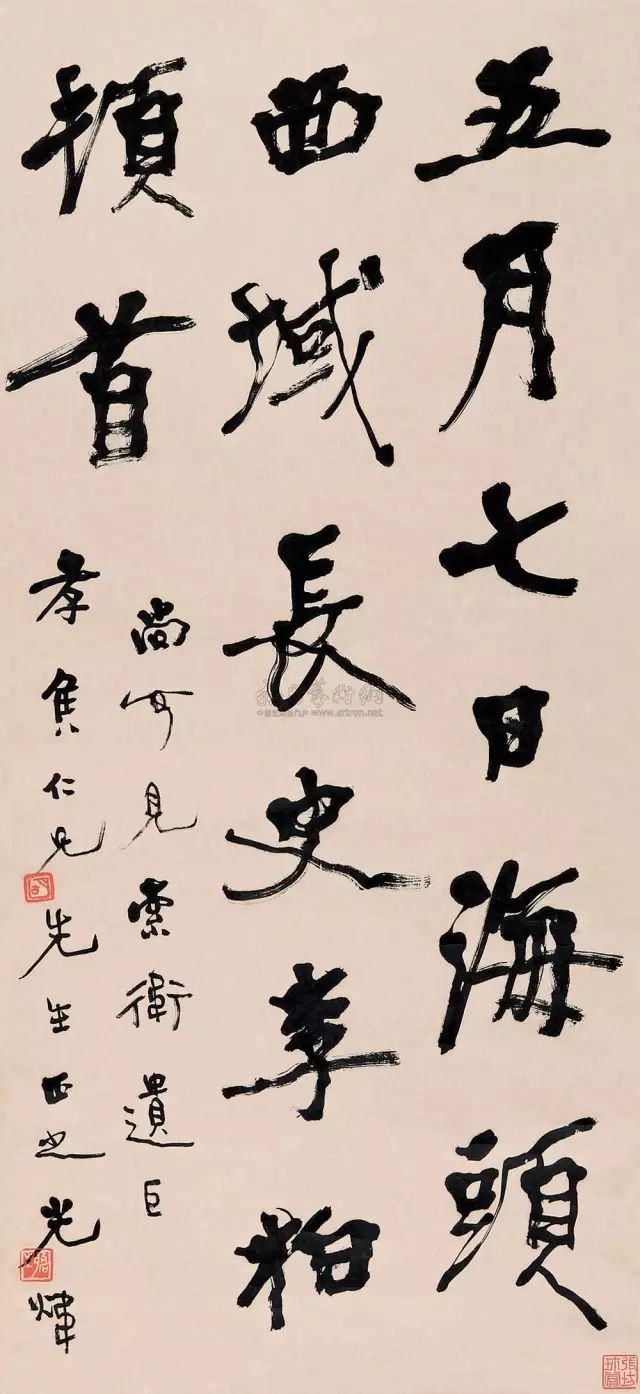 五月七日海頭
西域長史李柏
頓首
尚可見索衛遺巨
孝矦仁兄先生正之光煒
www.artron.net